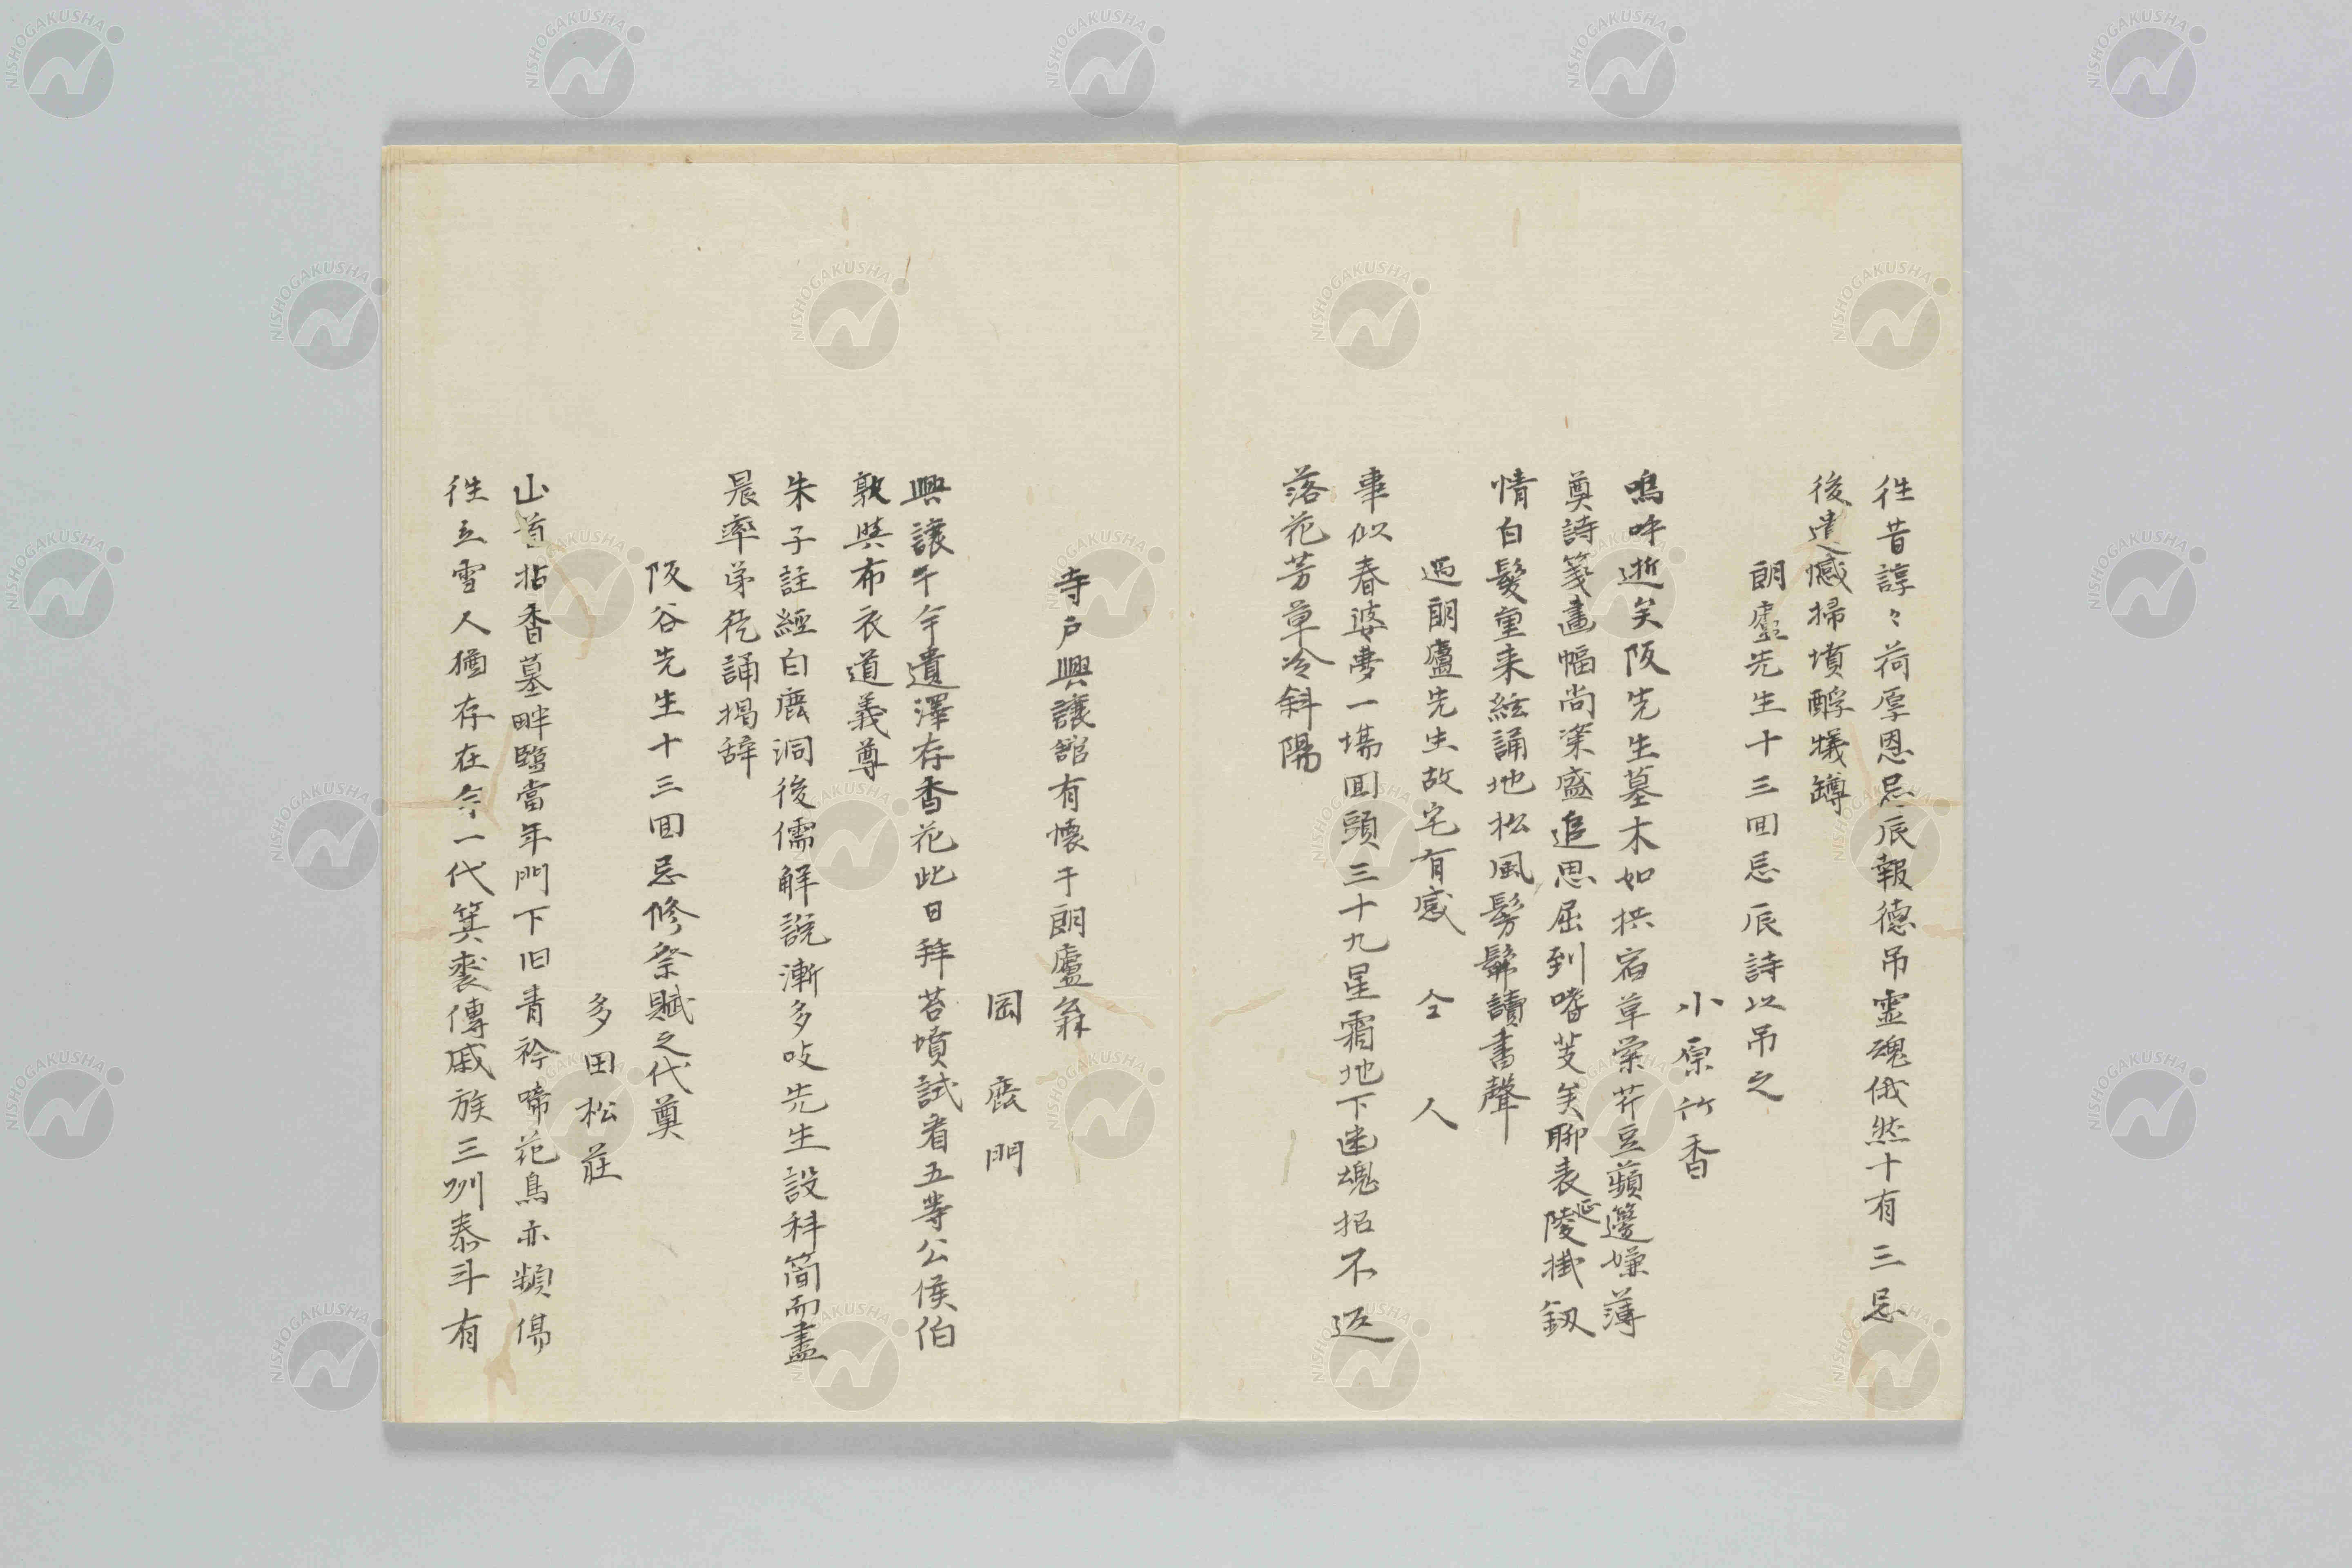 徃昔諄々荷厚恩忌辰報德吊霊魂俄然十有三忌
後遺憾掃墳酹犠罇
朗盧先生十三回忌辰詩以吊之
小原竹香
嗚呼逝矣阪先生墓木如拱宿草榮芹豆蘋籩嫌薄
奠詩箋畫幅尚粢盛追思屈到嗜芰矣聊表延陵掛釼
情白髮重来絃誦地松風髣髴讀書聲
過朗盧先生故宅有感 仝人
事似春婆夢一場回頭三十九星霜地下迷魂招不返
落花芳草冷斜陽
寺戸興譲館有懐于朗盧翁
岡鹿門
興譲于今遺澤存香花此日拜苔墳試看五等公侯伯
孰與布衣道義尊
朱子註經白鹿洞後儒解説漸多吱先生設科簡而盡
晨率弟徒誦掲辞
阪谷先生十三回忌修祭賦之代奠
多田松莊
山首拈香墓畔臨當年門下旧青衿啼花鳥亦頻傷
徃立雪人猶存在今一代箕裘傳戚族三刕泰斗有